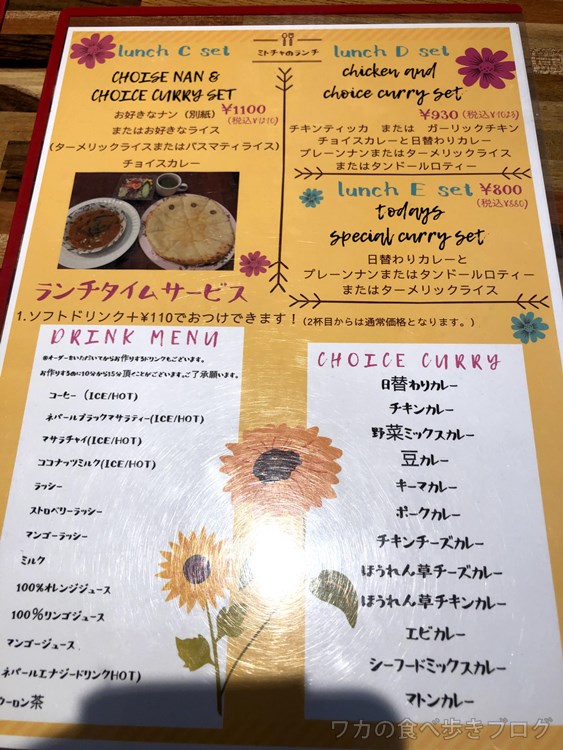 lunch C set
CHOISE NAN &
CHOICE CURRY SET
お好きなナン（別紙）
¥1100
またはお好きなライス
(ターメリックライスまたはバスマティライス)
チョイスカレー
ミトチャのランチ
lunch D set
chicken and
choice curry set
¥930
チキンティッカ または ガーリックチキン
チョイスカレーと日替わりカレー
プレーンナンまたはターメリックライス
またはタンドールロティー
lunch E set ¥800
(税込¥880)
todays
special curry set
日替わりカレーと
プレーンナンまたはタンドールロティー
またはターメリックライス
ランチタイムサービス
1.ソフトドリンク＋¥110でおつけできます！(2杯目からは通常価格となります。)
DRINK MENU
※オーダーをいただいてからお作りするドリンクもございます。
お作りするのに10分から15分頂くことがございます。ご了承願います。
コーヒー（ICE/HOT)
ネパールブラックマサラティー(ICE/HOT)
マサラチャイ(ICE/HOT)
ココナッツミルク(ICE/HOT)
ラッシー
ストロベリーラッシー
マンゴーラッシー
ミルク
100%オレンジジュース
100％リンゴジュース
マンゴージュース
ネパールエナジードリンクHOT)
ウーロン茶
CHOICE CURRY
日替わりカレー
チキンカレー
野菜ミックスカレー
豆カレー
キーマカレー
ポークカレー
チキンチーズカレー
ほうれん草チーズカレー
ほうれん草チキンカレー
エビカレー
シーフードミックスカレー
マトンカレー
ワカの食べ歩きブログ